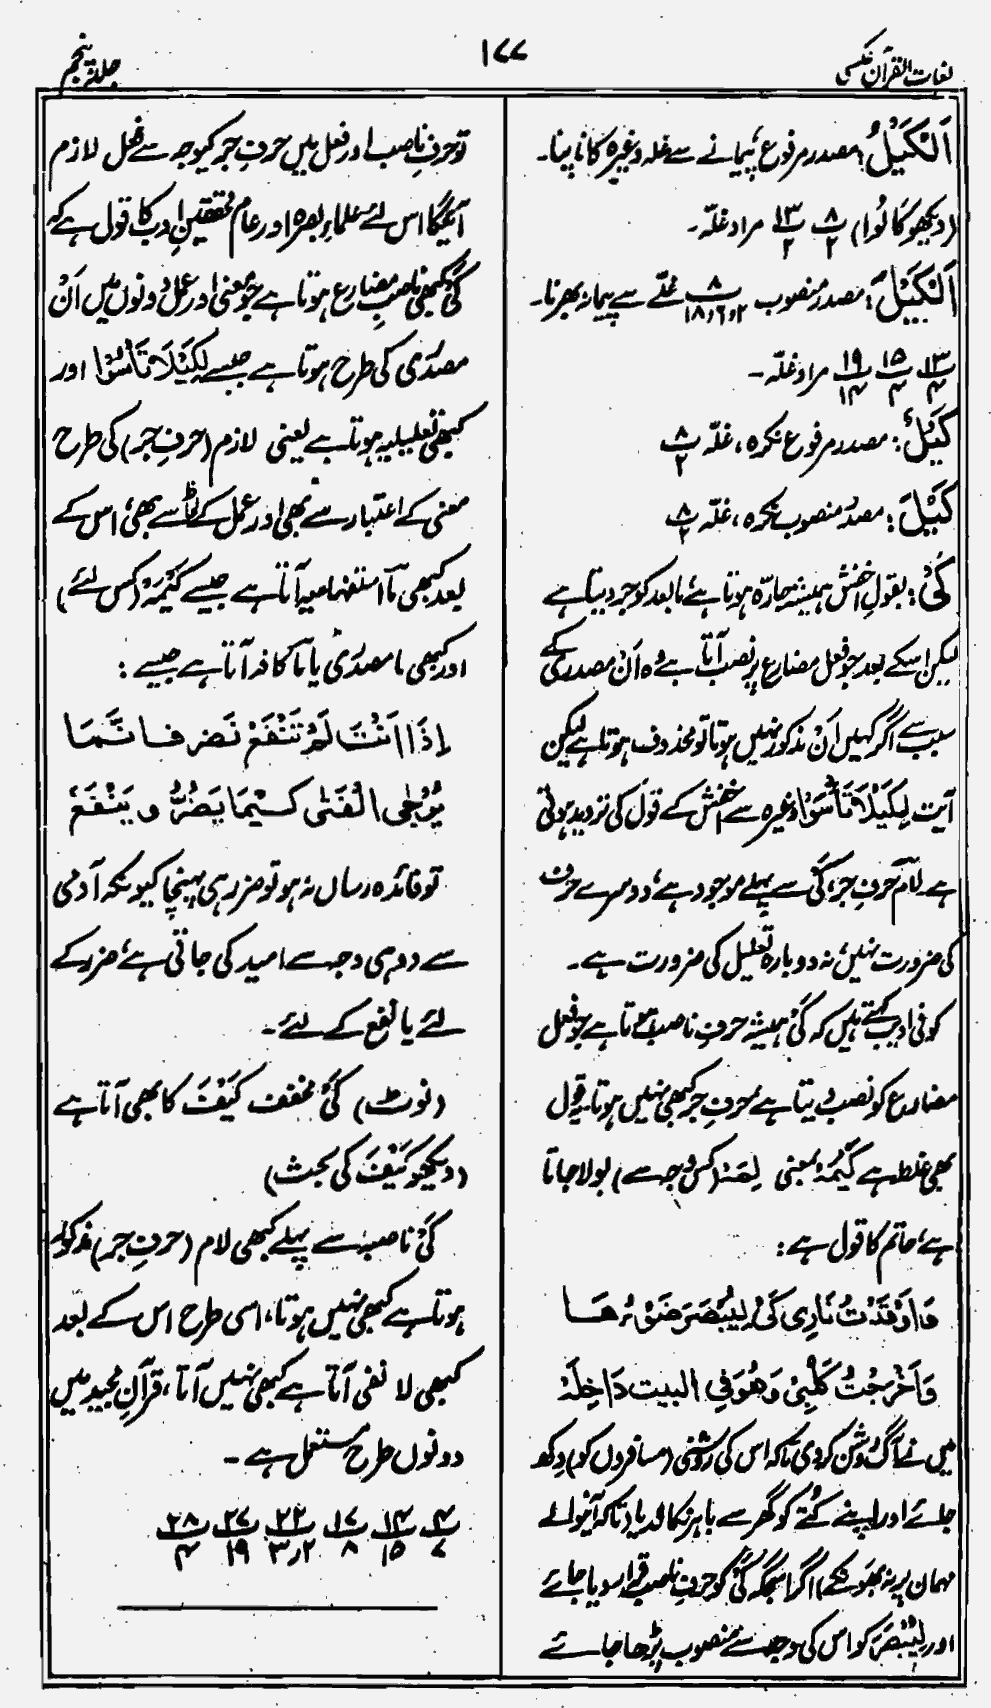 لغات القرآن عکسی
۱۷۷
جلد پنجم
اَلْکَیْلُ؛ مصدر مرفوع، پیمانے سے غلہ وغیرہ کا ناپنا۔
(دیکھو کَالُوا) ۸/۲ ۱۳/۲ مراد غلّہ۔
اَلْکَیْلَ؛ مصدر منصوب ۸/۲،۶،۱۸ غلّے سے پیمانہ بھرنا۔
۱۳/۴ ۱۵/۴ ۱۹/۱۴ مراد غلّہ۔
کَیْلٌ؛ مصدر مرفوع نکرہ، غلّہ ۸/۲
کَیْلَ؛ مصدر منصوب نکرہ، غلّہ ۸/۲
کَیْ؛ بقولِ اخفش ہمیشہ جارّہ ہوتا ہے، مابعد کو جر دیتا ہے
لیکن اسکے بعد جو فعل مضارع پر نصب آتا ہے وہ اَنْ مصدری کے
سبب سے اگر کہیں اَنْ مذکور نہیں ہوتا تو محذوف ہوتا ہے لیکن
آیت لِکَیْلَا تَأْسَوْا وغیرہ سے اخفش کے قول کی تردید ہوتی
ہے لآم حرفِ جر، کَیْ سے پہلے موجود ہے، دوسرے حرف
کی ضرورت نہیں، نہ دوبارہ تعلیل کی ضرورت ہے۔
کوفی ادیب کہتے ہیں کہ کَیْ ہمیشہ حرفِ ناصب ہوتا ہے جو فعل
مضارع کو نصب دیتا ہے حرفِ جر کبھی نہیں ہوتا، یہ قول
بھی غلط ہے کَیْمَہْ بمعنی لِمَہْ (کس وجہ سے) بولا جاتا
ہے، حاتم کا قول ہے:
فَاَوْقَدْتُ نَارِی کَیْ لِیُبْصَرَ ضَوْءُهَا
وَاَخْرَجْتُ کَلْبِیْ وَهُوَ فِی البیت دَاخِلُهْ
میں نے آگ روشن کر دی تاکہ اس کی روشنی (مسافروں کو) دکھ
جائے اور اپنے کُتّے کو گھر سے باہر نکالدیا (تاکہ آنیوالے
مہمان پر نہ بھونکے) اگر اس جگہ کَیْ کو حرفِ ناصب قرار دیا جائے
اور لِیُبْصَرَ کو اس کی وجہ سے منصوب پڑھا جائے
تو حرفِ ناصب اور فعل میں حرفِ جر کیوجہ سے فصل لازم
آئیگا اس لئے علماءِ بصرہ اور عام محققینِ ادب کا قول ہے کہ
کَیْ کبھی ناصبِ مضارع ہوتا ہے جو معنیٰ اور عمل دونوں میں اَنْ
مصدری کی طرح ہوتا ہے جیسے لِکَیْلَا تَأْسَوْا اور
کبھی تعلیلیہ ہوتا ہے یعنی لازم (حرفِ جر) کی طرح
معنی کے اعتبار سے بھی اور عمل کے لحاظ سے بھی، اس کے
بعد کبھی مَآ استفہامیہ آتا ہے جیسے کَیْمَہْ (کس لئے)
اور کبھی ما مصدری یا مَآ کافہ آتا ہے جیسے:
اِذَا اَنْتَ لَمْ تَنْفَعْ فَضُر فانَّمَا
یُرْجٰی الْفَتٰی کَیْمَا یَضُرُّ وینْفَعُ
تو فائدہ رساں نہ ہو تو ضرر ہی پہنچا کیونکہ آدمی
سے دو ہی وجہ سے امید کی جاتی ہے، ضرر کے
لئے یا نفع کے لئے۔
(نوٹ) کَیْ مخفف کَیْفَ کا بھی آتا ہے
(دیکھو کَیْفَ کی بحث)
کَیْ ناصبہ سے پہلے کبھی لام (حرفِ جر) مذکور
ہوتا ہے کبھی نہیں ہوتا، اسی طرح اس کے بعد
کبھی لا نفی آتا ہے کبھی نہیں آتا، قرآنِ مجید میں
دونوں طرح مستعمل ہے۔
۴/۷ ۱۴/۱۵ ۱۷/۸ ۲۲/۲،۳ ۲۷/۱۹ ۲۸/۴